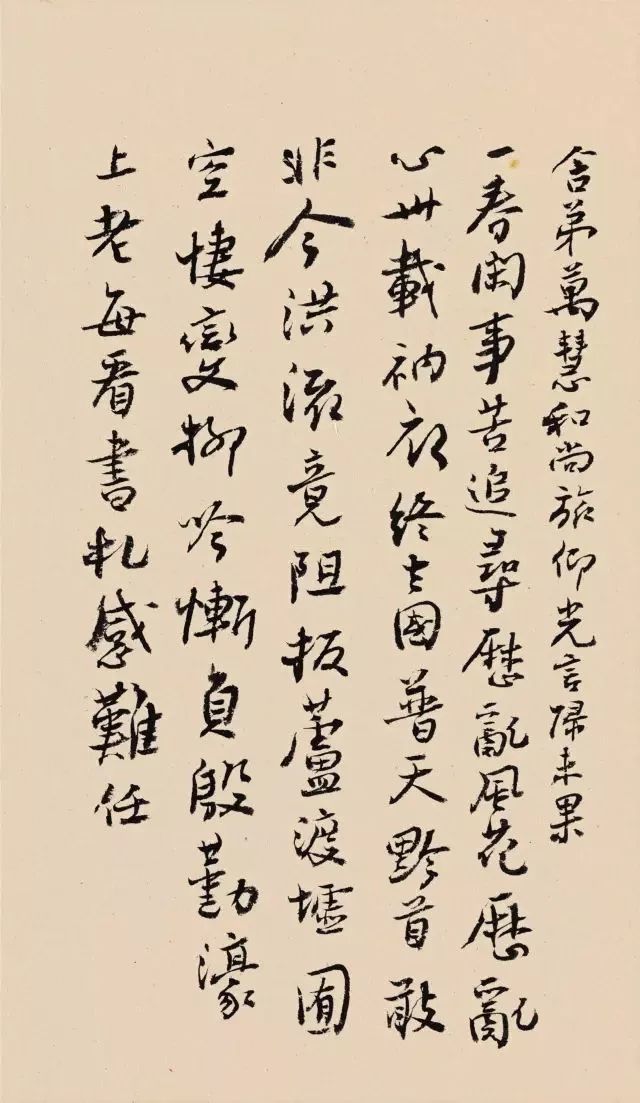 舍弟萬慧和尚旅仰光言歸未果
一春閑事苦追尋歷亂風花歷亂
心卅載衲衣終去國普天黔首敢
非今洪流竟阻扳蘆渡墟囿
空悽變柳吟慚負殷勤濠
上老每看書札感難任